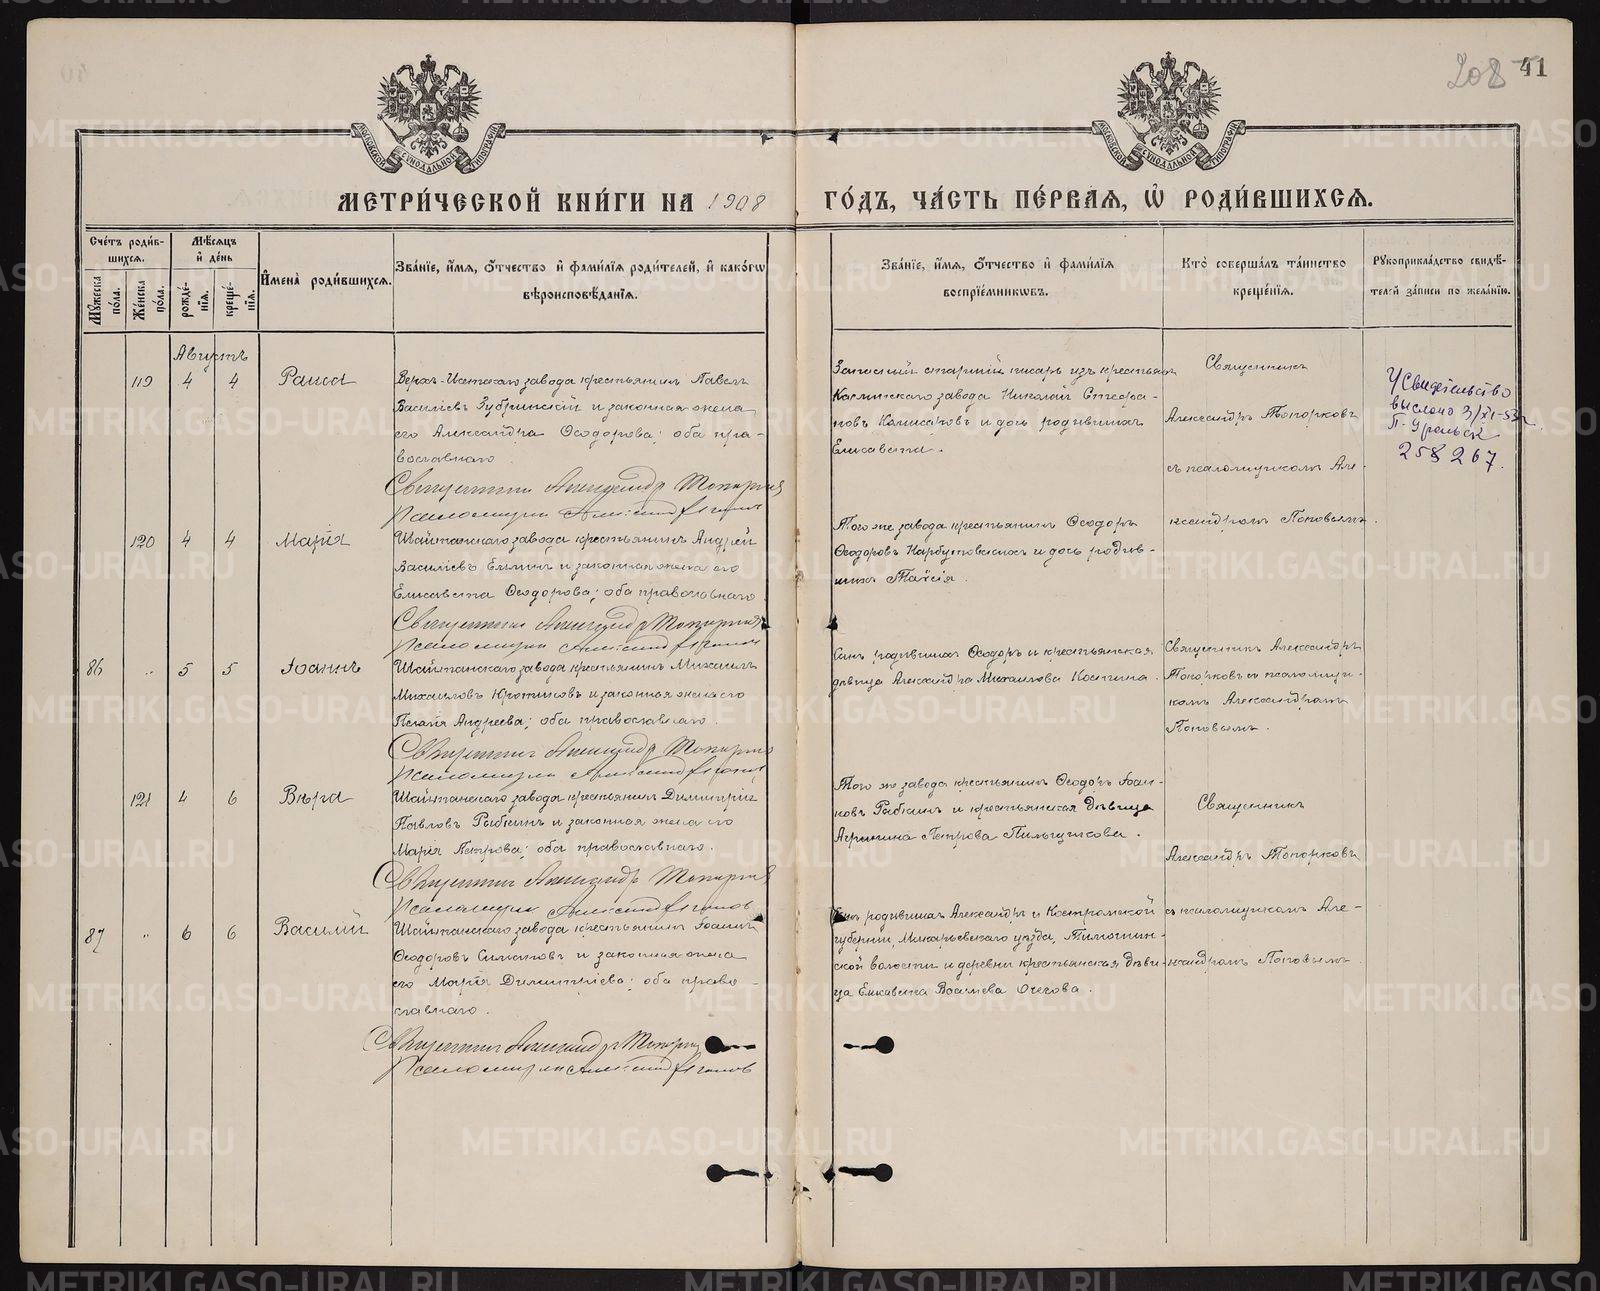 208 41
МОСКОВСКОЙ СѴНОДАЛЬНОЙ ТИПОГРАФІИ
МОСКОВСКОЙ СѴНОДАЛЬНОЙ ТИПОГРАФІИ
МЕТРИ́ЧЕСКОЙ КНИ́ГИ НА 1908 ГО́ДЪ, ЧА́СТЬ ПЕ́РВАЯ, Ѡ҆ РОДИ́ВШИХСЯ.
Сче́тъ роди́в-
шихся.
Мꙋ́жеска по́ла.
Же́нска по́ла.
Мѣ́сяцъ
и҆ де́нь
рожде́-
нїя.
креще́-
нїя.
И҆мена̀ роди́вшихся.
Зва́нїе, и҆́мя, ѻ҆́тчество и҆ фами́лїя роди́телей, и҆ како́гѡ
вѣроисповѣ́данїя.
Зва́нїе, и҆́мя, ѻ҆́тчество и҆ фами́лїя
воспрїе́мникѡвъ.
Кто̀ соверша́лъ та́инство
креще́нїя.
Рꙋкоприкла́дство свидѣ́-
телей за́писи по жела́нїю.
Августъ
119 4 4 Раиса
Верхъ-Исетскаго завода крестьянинъ Павелъ
Васильевъ Зубринскій и законная жена
его Александра Ѳеодорова; оба пра-
вославнаго.
Священникъ Александръ Топорковъ
Псаломщикъ Александръ Поповъ
Запасный старшій писарь изъ крестьянъ
Каслинскаго завода Николай Стефа-
новъ Комисаровъ и дочь родившихъ
Елисавета.
Священникъ
Александръ Топорковъ
съ псаломщикомъ Але-
ксандромъ Поповымъ.
Свидетельство
выслано 3/XI-53г
П-Уральск
258267.
120 4 4 Марія
Шайтанскаго завода крестьянинъ Андрей
Васильевъ и законная жена его
Елисавета Ѳеодорова; оба православнаго.
Священникъ Александръ Топорковъ
Псаломщикъ Александръ Поповъ
Того же завода крестьянинъ Ѳеодоръ
Ѳеодоровъ и дочь родив-
шихъ Таисія.
86 " 5 5 Іоаннъ
Шайтанскаго завода крестьянинъ Михаилъ
Михаиловъ и законная жена его
Пелагія Андреева; оба православнаго.
Священникъ Александръ Топорковъ
Псаломщикъ Александръ Поповъ
Сынъ родившихъ Ѳеодоръ и крестьянская
дѣвица Александра Михаилова Костина.
Священникъ Александръ
Топорковъ съ псаломщи-
комъ Александромъ
Поповымъ.
121 4 6 Вѣра
Шайтанскаго завода крестьянинъ Димитрій
Павловъ Рыбкинъ и законная жена его
Марія Петрова; оба православнаго.
Священникъ Александръ Топорковъ
Псаломщикъ Александръ Поповъ
Того же завода крестьянинъ Ѳеодоръ Іоан-
новъ Рыбкинъ и крестьянская дѣвица
Агрипина Петрова Пильщикова.
Священникъ
Александръ Топорковъ
87 " 6 6 Василій
Шайтанскаго завода крестьянинъ Іоаннъ
Ѳеодоровъ и законная жена
его Марія Димитріева; оба право-
славнаго.
Священникъ Александръ Топорковъ
Псаломщикъ Александръ Поповъ
Сынъ родившихъ Александръ и Костромской
губерніи, Макарьевскаго уѣзда,
ской волости и деревни крестьянская дѣви-
ца Елисавета Васильева
съ псаломщикомъ Але-
ксандромъ Поповымъ.
METRIKI.GASO-URAL.RU